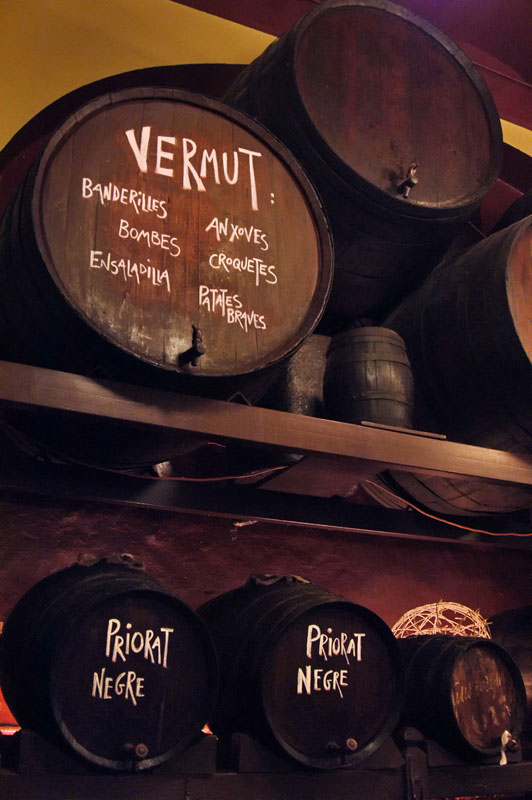 VERMUT:
BANDERILLES
BOMBES
ENSALADILLA
ANXOVES
CROQUETES
PATATES
BRAVES
PRIORAT
NEGRE
PRIORAT
NEGRE